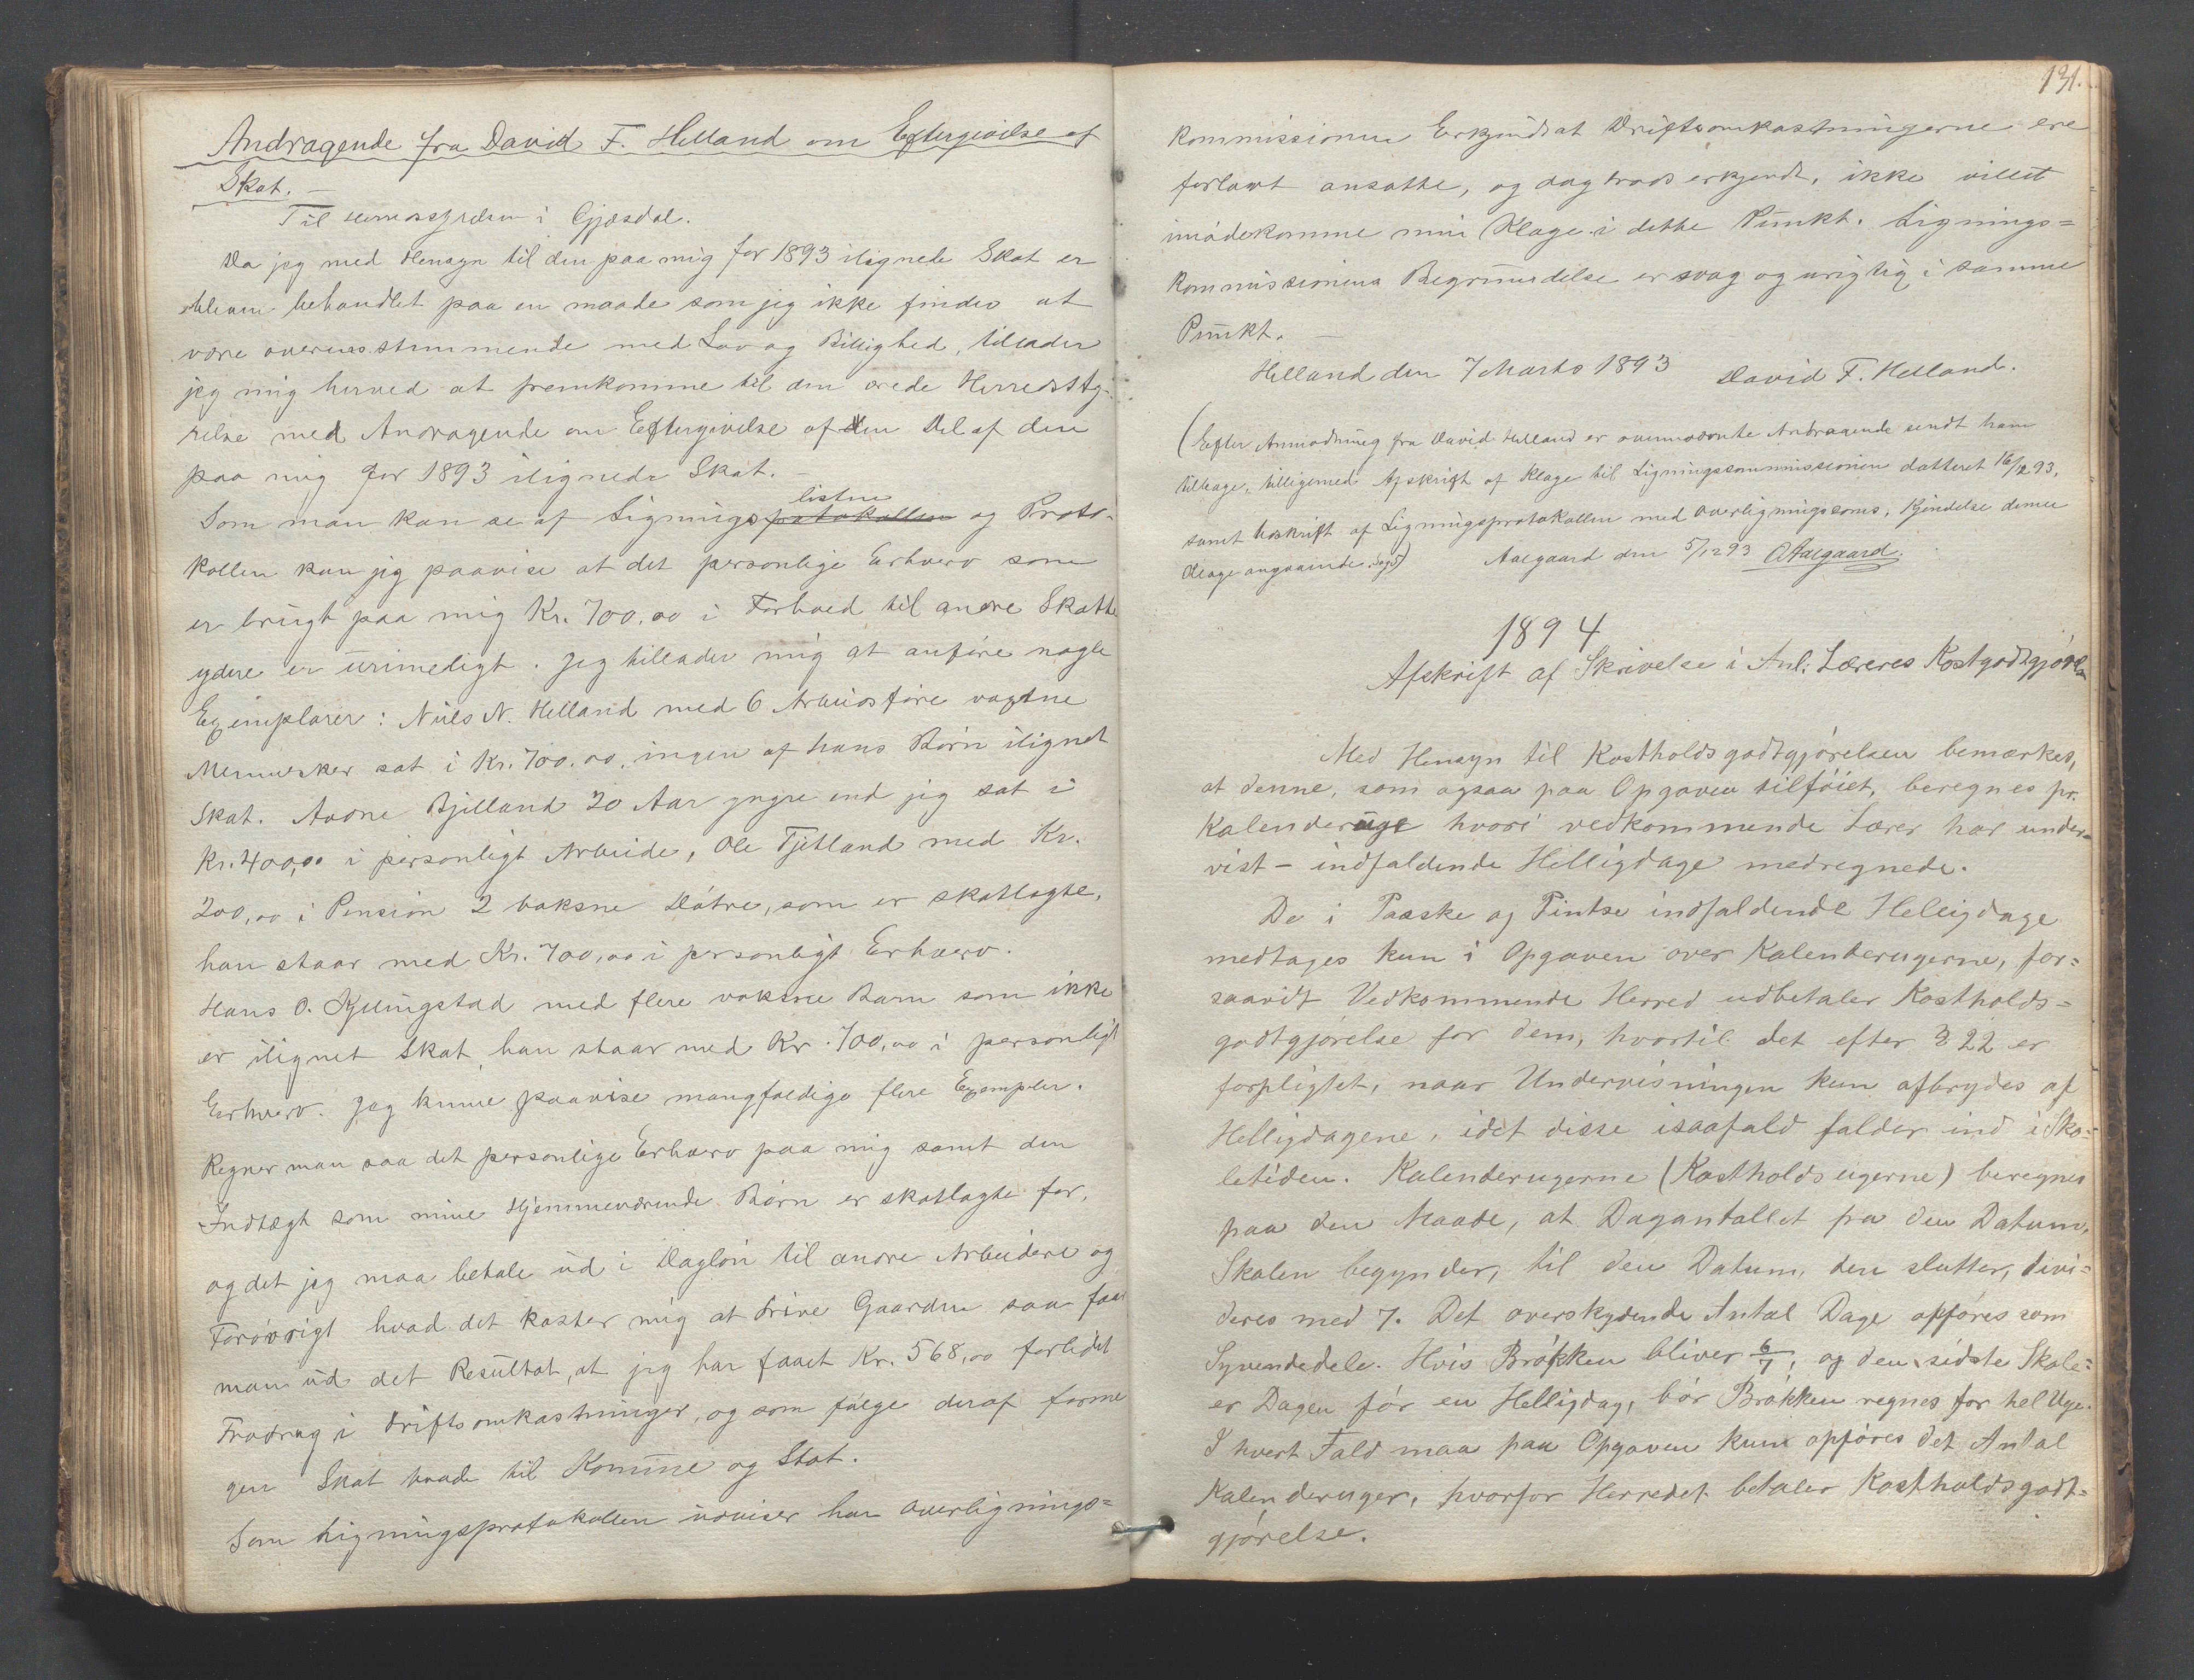 Andragende fra David F. Helland om Eftergivelse af
Skat. —
Til Herredsstyrelsen i Gjæsdal.
Da jeg med Hensyn til den paa mig for 1893 ilignede Skat er
bleven behandlet paa en maade som jeg ikke finder at
være overensstemmende med Lov og Billighed, tillader
jeg mig herved at fremkomme til den ærede Herredssty-
relse med Andragende om Eftergivelse af den Del af den
paa mig for 1893 ilignede Skat. —
listen
Som man kan se af Lignings protokollen og Proto-
kollen kan jeg paavise at det personlige Erhverv som
er brugt paa mig Kr. 700,00 i Forhold til andre Skatte
ydere er urimeligt. Jeg tillader mig at anføre nogle
Exemplarer: Niels N. Helland med 6 Arbeidsføre voxne
Mennesker sat i Kr. 700,00, ingen af hans Børn ilignet
Skat. Aadne Bjelland 20 Aar yngre end jeg sat i
Kr. 400,00 i personligt Arbeide, Ole Tjetland med Kr.
200,00 i Pension 2 voksne Døtre, som er skatlagte,
han staar med Kr. 700,00 i personligt Erhverv.
Hans O. Kyllingstad med flere voksne Barn som ikke
er ilignet Skat, han staar med Kr. 700,00 i personligt
Erhverv. Jeg kunne paavise mangfoldige flere Exempler.
Regner man saa det personlige Erhverv paa mig samt den
Indtægt som mine Hjemmeværende Børn er skatlagte for,
og det jeg maa betale ud i Dagløn til andre Arbeidere og
Forøvrigt hvad det koster mig at drive Gaarden saa faar
man ud det Resultat, at jeg har faaet Kr. 568,00 forlidet
Fradrag i Driftsomkostninger, og som følge deraf forme
gen Skat baade til Komune og Stat.
Som Ligningsprotokollen udviser har Overlignings=
131.
kommissionen Erkjendt at Driftsomkostningerne ere
forlavt ansatte, og dog trods erkjendt, ikke villet
imødekomme min Klage i dette Punkt. Lignings=
kommissionens Begrundelse er svag og urigtig i samme
Punkt. —
Helland den 7 Marts 1893 David F. Helland.
(Efter Anmodning fra David Helland er ovennævnte Andragende sendt ham
tilbage, tilligemed Afskrift af Klage til Ligningscommissionen datteret 16/12 93,
samt Udskrift af Ligningsprotokollen med Overligningscoms. Kjendelse denne
Klage angaaende.)
Aalgaard den 5/12 93 OAalgaard.
1894
Afskrift af Skrivelse i Anl: Læreres Kostgodtgjørelse
Med Hensyn til Kostholdsgodtgjørelsen bemærkes,
at denne, som ogsaa paa Opgaven tilføiet, beregnes pr.
Kalenderuge hvori vedkommende Lærer har under-
vist – indfaldende Helligdage medregnede.
De i Paaske og Pintse indfaldende Helligdage
medtages kun i Opgaven over Kalenderugerne, for=
saavidt Vedkommende Herred udbetaler Kostholds=
godtgjørelse for dem, hvortil det efter § 22 er
forpligtet, naar Undervisningen kun afbrydes af
Helligdagene, idet disse isaafald falder ind i Sko=
letiden. Kalenderugerne (Kostholdsugerne) beregnes
paa den Maade, at Dagantallet fra den Datum,
Skolen begynder, til den Datum, den slutter, divi=
deres med 7. Det overskydende Antal Dage opføres som
Syvendedele. Hvis Brøkken bliver 6/7, og den sidste Skole=
er Dagen før en Helligdag, bør Brøkken regnes for hel Uge.
I hvert Fald maa paa Opgaven kun opføres det Antal
Kalenderuger, hvorfor Herredet betaler Kostholdsgodt=
gjørelse.